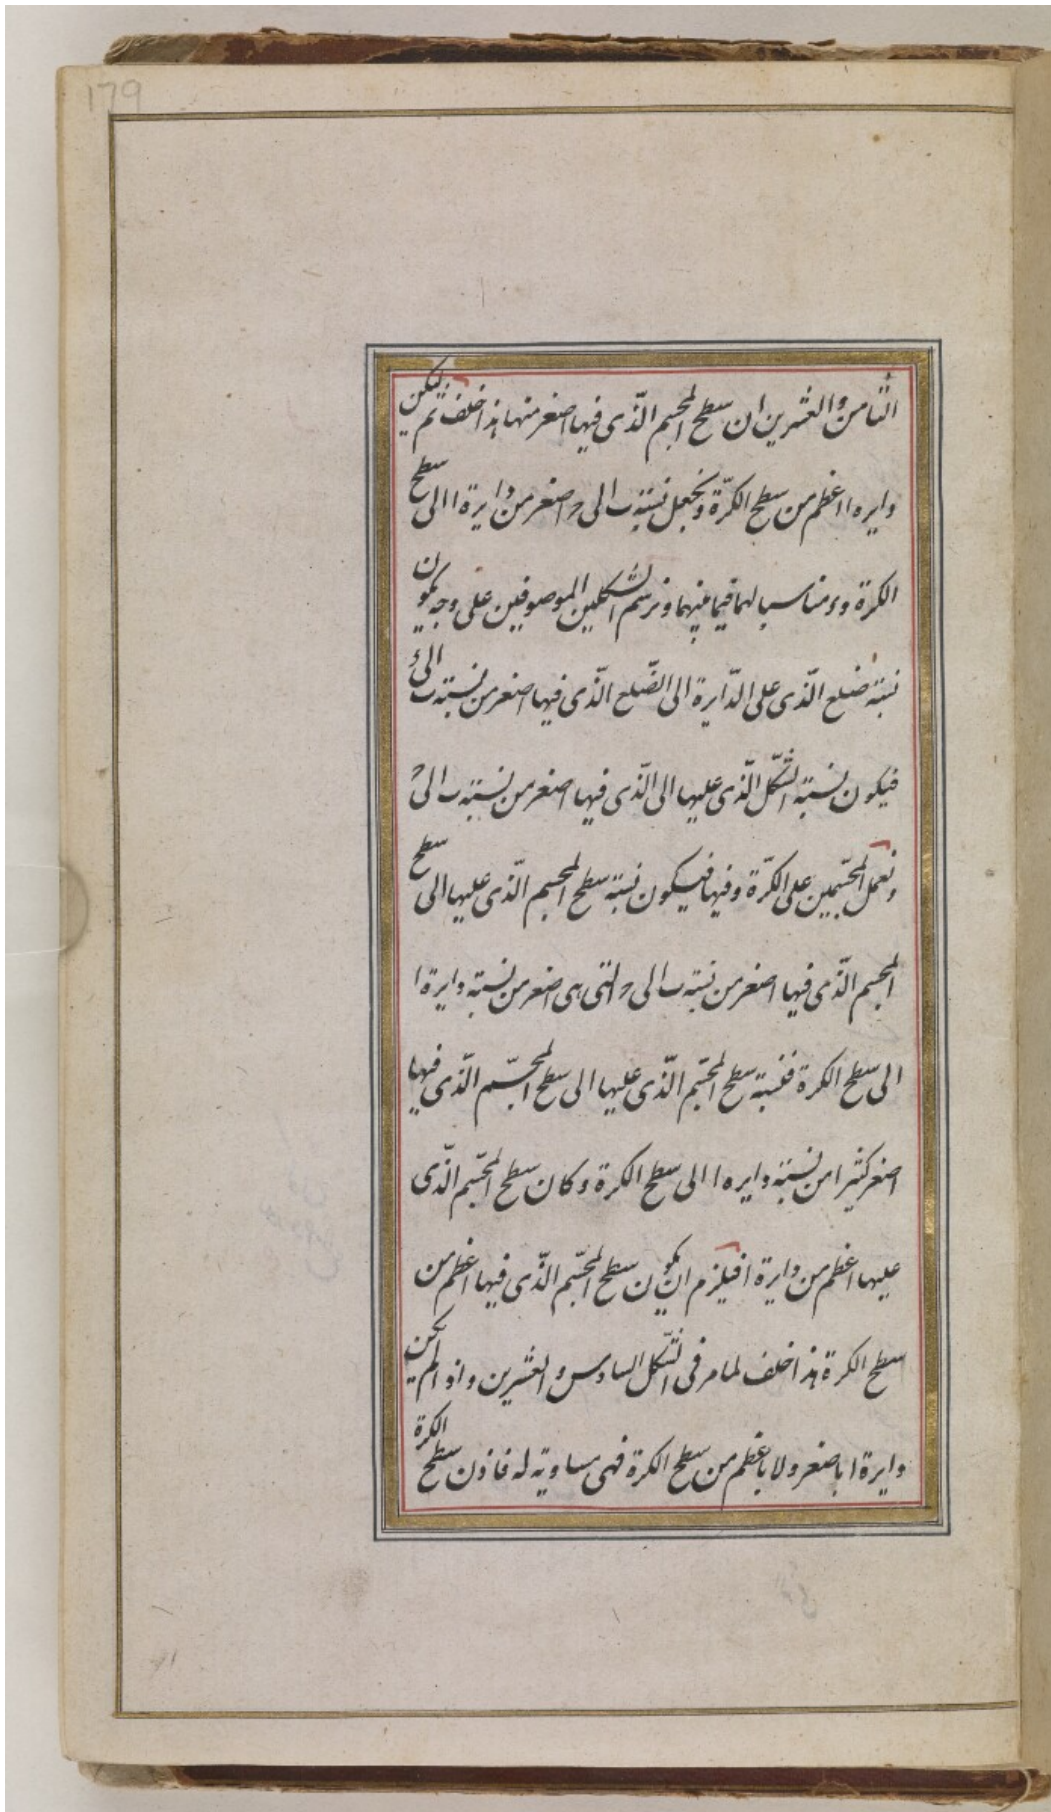 179
الثامن والعشرين ان سطح المجسم الذى فيها اصغر منها هذا خلف ثم ليكن
دايره ا اعظم من سطح الكرة ونجعل نسبة ب الى ح اصغر من دايرة ا الى سطح
الكرة و ء مناسبا لهما فيما بينهما ونرسم الشكلين الموصوفين على وجه يكون
نسبة ضلع الذى على الدايرة الى الضلع الذى فيها اصغر من نسبة ب الى ء
فيكون نسبة الشكل الذى عليها الى الذى فيها اصغر من نسبة ب الى ح
ونعمل المجسمين على الكرة وفيها فيكون نسبة سطح المجسم الذى عليها الى سطح
المجسم الذى فيها اصغر من نسبة ب الى ح التى هى اصغر من نسبة دايرة ا
الى سطح الكرة فنسبة سطح المجسم الذى عليها الى سطح المجسم الذى فيها
اصغر كثيرا من نسبة دايره ا الى سطح الكرة وكان سطح المجسم الذى
عليها اعظم من دايرة ا فيلزم ان يكون سطح المجسم الذى فيها اعظم من
سطح الكرة هذا خلف لما مر فى الشكل السادس والعشرين واذا لم يكن
دايرة ا باصغر ولا باعظم من سطح الكرة فهى مساوية له فاذن سطح الكرة